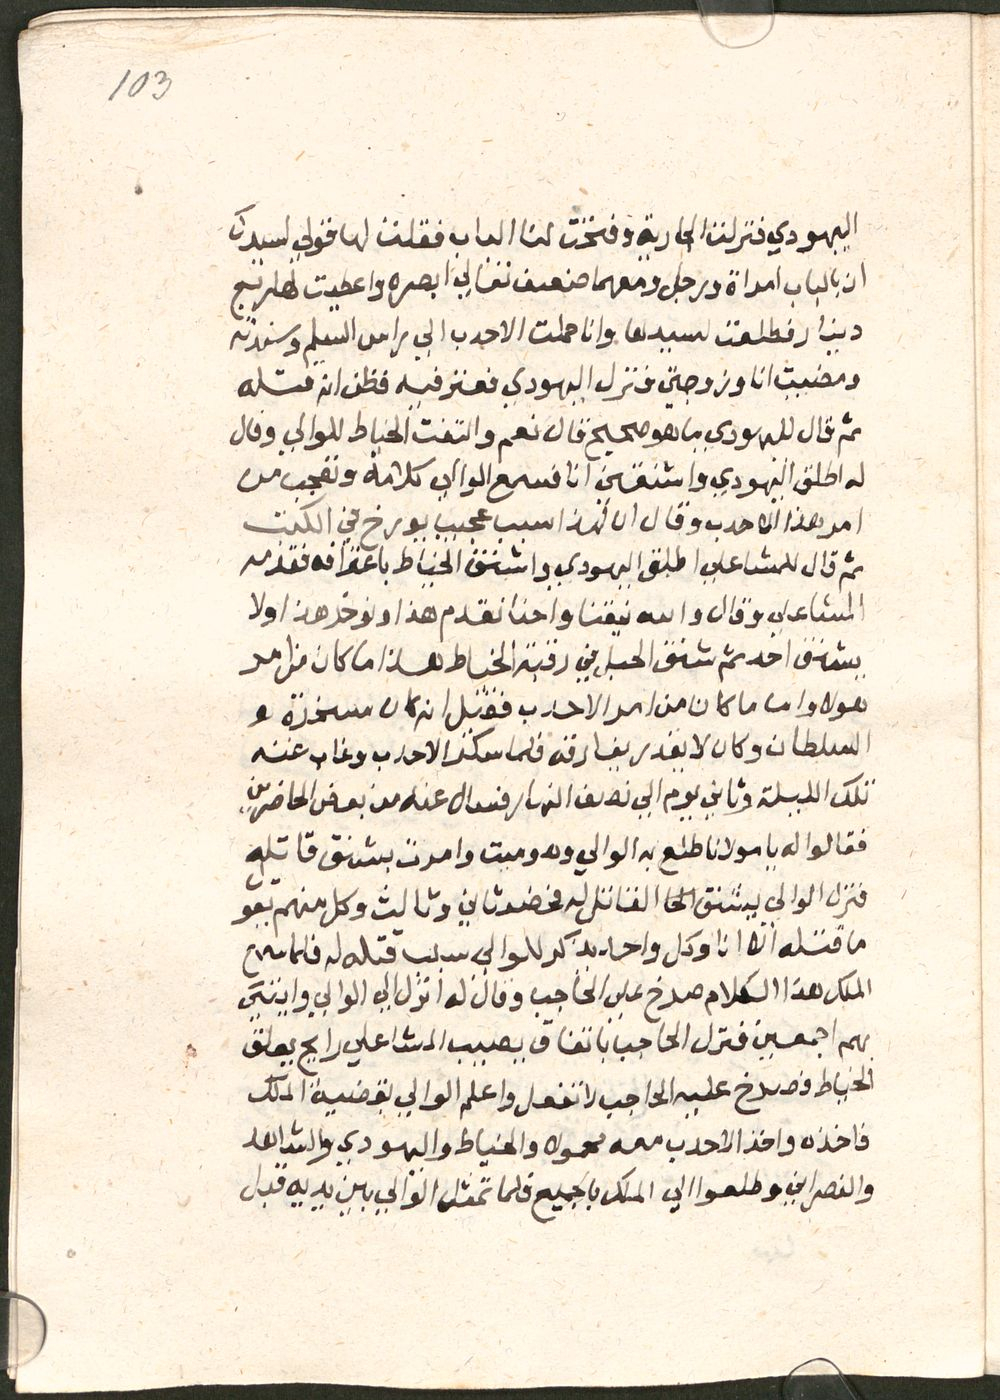 103
اليهودي فنزلت الجارية وفتحت لنا الباب فقلت لها قولي لسيدك
ان بالباب امراة ورجل ومعهما ضعيف تعالى ابصره واعطيت لها ربع
دينار فطلعت لسيدها وانا حملت الاحدب الي راس السلم وسندته
ومضيت انا وزوجتي فنزل اليهودي فعتر فيه فظن انه قتله
ثم قال لليهودي ما هو صحيح قال نعم والتفت الخياط للوالي وقال
له اطلق اليهودي واشنقني انا فسمع الوالي كلامه وتعجب من
امر هذا الاحدب وقال ان لهذا سبب عجيب يورخ في الكتب
ثم قال للمشاعلي اطلق اليهودي واشنق الخياط باعترافه فقدمه
المشاعلي وقال والله تيقنا واحنا نقدم هذا ونوخر هذا ولا
يشنق احد ثم شنق الحبل في رقبة الخياط هذا ما كان من امر
هولا واما ما كان من امر الاحدب فقيل انه كان مسخرة
السلطان وكان لا يقدر يفارقه فلما سكر الاحدب وغاب عنه
تلك الليلة وثاني يوم الي نصف النهار فسال عنه من بعض الحاضرين
فقالوا له يا مولانا طلع به الوالي وهو ميت وامر بشنق قاتله
فنزل الوالي يشنق القاتل له فحضر ثاني وثالث وكل منهم يقو
ما قتله الا انا وكل واحد يذكر للوالي سبب قتله له فلما سمع
الملك هذا الكلام صرخ على الحاجب وقال له انزل الي الوالي وايتني
بهم اجمعين فنزل الحاجب باتفاق يصيب المشاعلي رايح يعلق
الخياط فصرخ عليه الحاجب لا تفعل واعلم الوالي بقضية الملك
فاخذه واخذ الاحدب معه محمول والخياط واليهودي والشاهد
والنصراني وطلعوا الي الملك بالجميع فلما تمثل الوالي بين يديه قبل